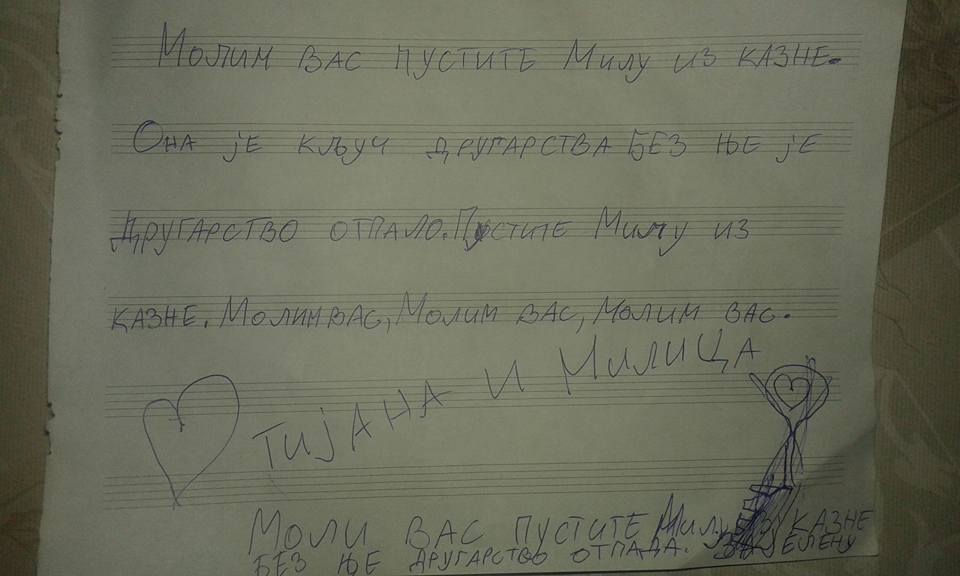 Молим вас пустите Милу из казне.
Она је кључ другарства без ње је
другарство отпало. Пустите Милу из
казне. Молим вас, Молим вас, Молим вас.
Тијана и Милица
Моли вас пустите Милу из казне
без ње другарство отпада. Јелену